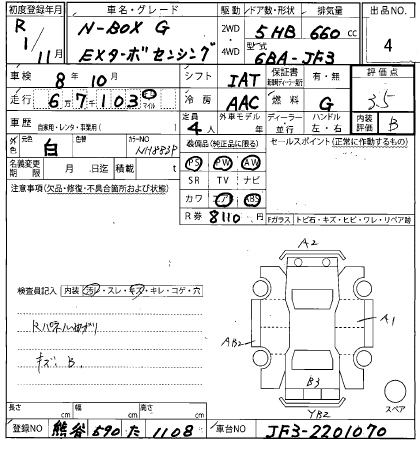 初度登録年月 車名・グレード 駆動・ドア数・形状 排気量 出品NO.
R 1/11月 N-BOX G 2WD・4WD 5HB 660cc 4
EXターボ センシング 型式 6BA-JF3
車検 8年10月 シフト IAT 保証書 有・無 評価点
走行 6万7千103 マイル 冷房 AAC 燃料 G 3.5
車歴 自家用・レンタ・事業用( ) 定員 4人 外車モデル 年 ディーラー・並行 ハンドル 左・右 内装評価 B
外色 元色 白 色替 カラーNO NH883P 装備品(純正品に限る) セールスポイント(正常に作動するもの)
名義変更期限 月 日迄 積載 t PS PW AW
SR TV ナビ
注意事項(欠品・修復・不具合箇所および状態) カワ エアB ABS
R券 8110円 Fガラス トビ石・キズ・ヒビ・ワレ・リペア跡
A2
検査員記入 内装 汚レ・スレ・キズ・キレ・コゲ・穴
A1
AB2
キズ B.
B3
スペア
YB2
長さ cm 幅 cm 高さ cm
登録NO 熊谷 590 た 1108 車台NO JF3-2201070